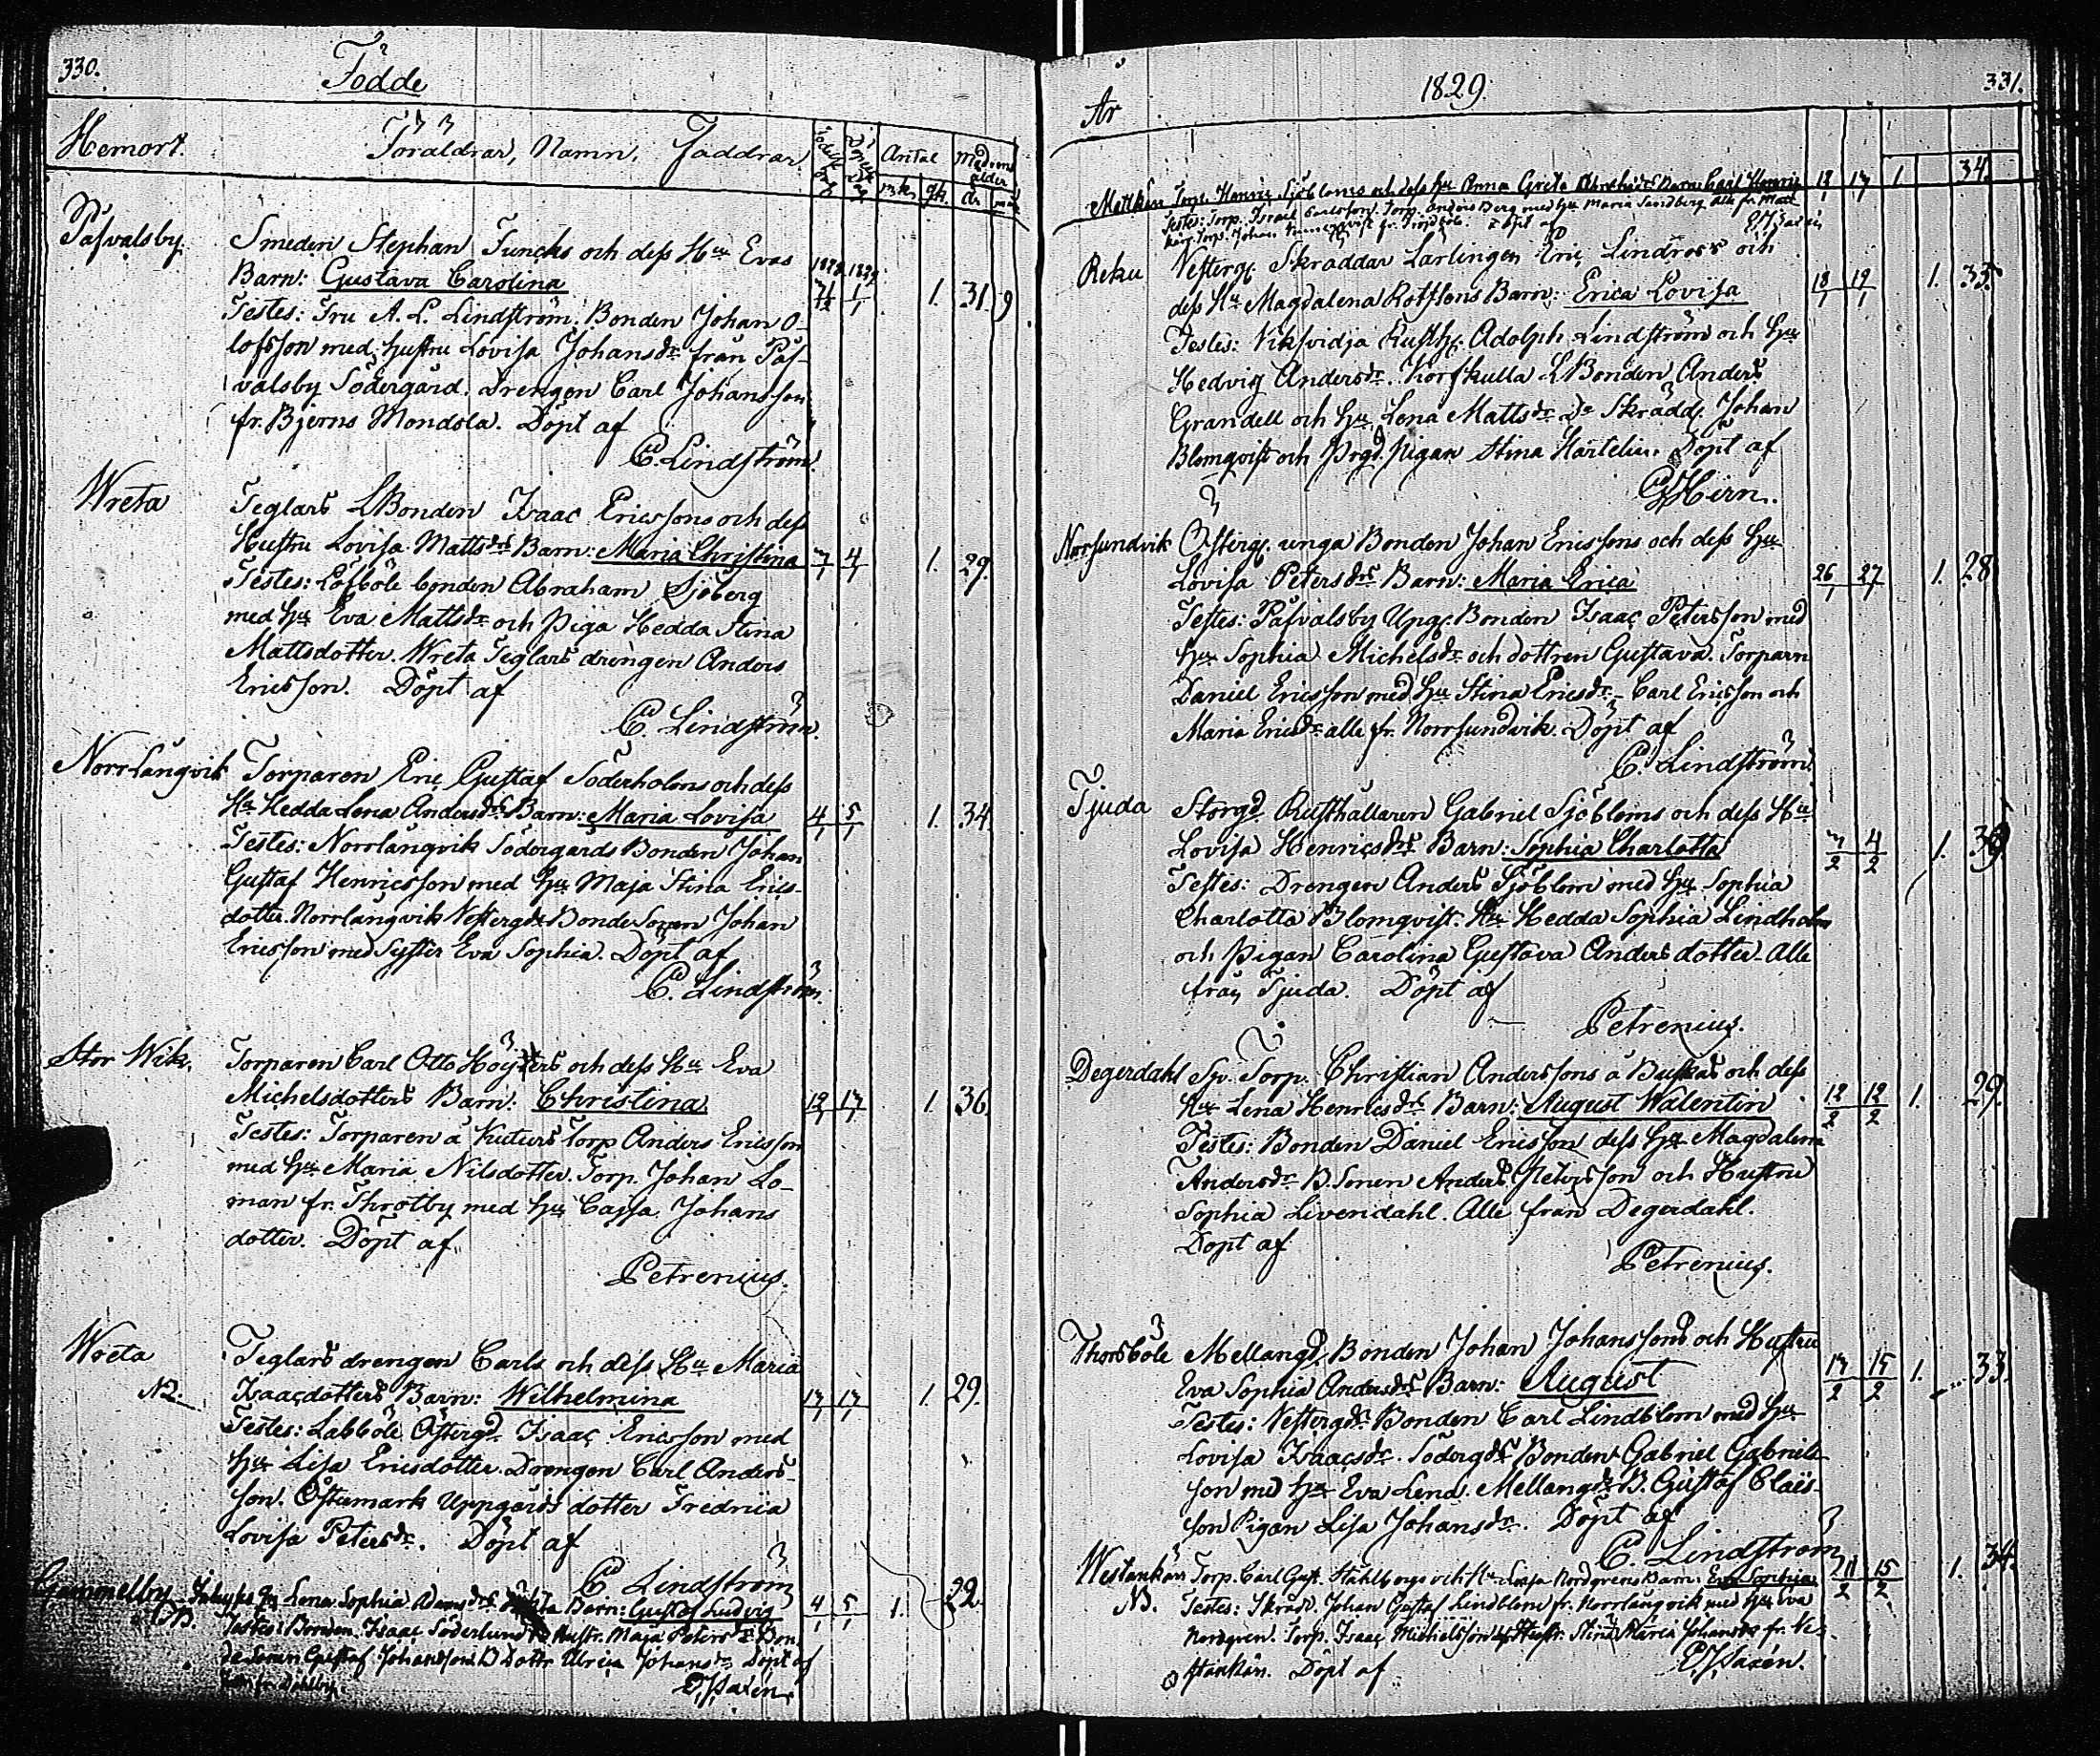 330.
Födde
Hemort. Föräldrar, Namn, Faddrar. Antal Modrens ålder
mk. qk. år mån
Påfvalsby. Smeden Stephan Funcks och dess Hu Evas
Barn: Gustava Carolina 1828 1829 31/12 1/1 1. 31. 9
Testes: Fru A. L. Lindström. Bonden Johan O-
lofsson med hustru Lovisa Johansdr från Påf-
valsby Södergård. Drengen Carl Johansson
fr. Bjerns Mondola. Döpt af
C. Lindström.
Wreta Teglars LBonden Isaac Ericssons och dess
Hustru Lovisa Mattsdrs Barn: Maria Christina 3/1 4/1 1. 29.
Testes: Löfböle bonden Abraham Sjöberg
med hu Eva Mattsdr och Piga Hedda Stina
Mattsdotter. Wreta Teglars drengen Anders
Ericsson. Döpt af
C. Lindström.
Norrlångvik Torparen Eric Gustaf Söderholms och dess
Hu Hedda Lena Andersdrs Barn: Maria Lovisa 4/1 5/1 1. 34.
Testes: Norrlångvik Södergårds Bonden Johan
Gustaf Henricsson med hu Maja Stina Erics-
dotter. Norrlångvik Vestergds BondeSonen Johan
Ericsson med Syster Eva Sophia. Döpt af
C. Lindström.
Stor Wik. Torparen Carl Otto Höijers och dess Hu Eva
Michelsdotters Barn: Christina 12/1 17/1 1. 36.
Testes: Torparen å Kuturs Torp Anders Ericsson
med hu Maria Nilsdotter. Torp. Johan Lo-
man fr. Throtby med hu Cajsa Johans
dotter. Döpt af
Petrenius.
Wreta Teglars drengen Carls och dess Hu Maria
N2. Isaacsdotters Barn: Wilhelmina 17/1 17/1 1. 29.
Testes: Labböle Östergd Isaac Ericsson med
hu Lisa Ericsdotter. Drengen Carl Anders-
son. Östermark Uppgårds dotter Fredrica
Lovisa Petersdr. Döpt af
C. Lindström
Gammelby Lena Sophia Barn: Gustaf Ludvig 4/1 5/1 1. 22.
Testes: Bonden Isaac Söderlund Hustr. Maja Petersdr Bon-
de Sonen Gustaf Johansson Dottr Ulrica Johansdr Döpt af

År 1829. 331.
Torp. Henric Sjöbloms och dess hu Anna Greta Barn: Carl Henric 13/1 17/1 1. 34.
Testes: Torp. Israel Carlsson. Torp. Anders Berg med hu Maria Sandberg alla fr. Matt-
Torp. Johan
Reku Vesterg. Skräddar Lärlingen Eric Lindroos och
dess Hu Magdalena Rolfsons Barn: Erica Lovisa 18/1 19/1 1. 35.
Testes: Viksvidja Rusth. Adolph Lindström och hu
Hedvig Andersdr. Korskulla LBonden Anders
Grandell och hu Lena Mattsdr Do Skrädd. Johan
Blomqvist och Prgd. Pigan Stina Hartelin. Döpt af
Hirn.
Norrsundvik Österg. unga Bonden Johan Ericssons och dess hu
Lovisa Petersdrs Barn: Maria Erica 26/1 27/1 1. 28
Testes: Påfvalsby Upg. Bonden Isaac Petersson med
hu Sophia Michelsdr och dottren Gustava. Torparn
Daniel Ericsson med hu Stina Ericsdr. Carl Ericsson och
Maria Ericsdr alla fr. Norrsundvik. Döpt af
C. Lindström.
Tjuda Storgd Rusthållaren Gabriel Sjöbloms och dess Hu
Lovisa Henricsdrs Barn: Sophia Charlotta 3/2 4/2 1. 39
Testes: Drengen Anders Sjöblom med hu Sophia
Charlotta Blomqvist. Hu Hedda Sophia Lindholm
och Pigan Carolina Gustava Andersdotter. Alla
från Tjuda. Döpt af
Petrenius.
Degerdahl Sp. Torp. Christian Anderssons å Buskas och dess
Hu Lena Henricsdrs Barn: August Walentin 12/2 12/2 1. 29.
Testes: Bonden Daniel Ericsson dess hu Magdalena
Andersdr B. Sonen Anders Petersson och Hustru
Sophia Livendahl. Alle från Degerdahl.
Döpt af
Petrenius.
Thorsböle Mellangd. Bonden Johan Johanssons och Hustru
Eva Sophia Andersdrs Barn: August 13/2 15/2 1. 33.
Testes: Vestergds Bonden Carl Lindblom med hu
Lovisa Isaacsdr. Södergds Bonden Gabriel Gabriels-
son med hu Eva Lena. Mellangds B. Gustaf Claës-
son Pigan Lisa Johansdr. Döpt af
C. Lindström
Westankärr Torp. Carl Gust. Ståhlbergs och Hu Nordgrens Barn: Eva Sophia 11/2 15/2 1. 34.
Testes: Skrädd. Johan Gustaf Lindblom fr. Norrlångvik med hu Eva
Nordgren. Torp. Isaac Michelsson Hustr. Stina Maria Johansdr fr. Ve-
stankärr. Döpt af